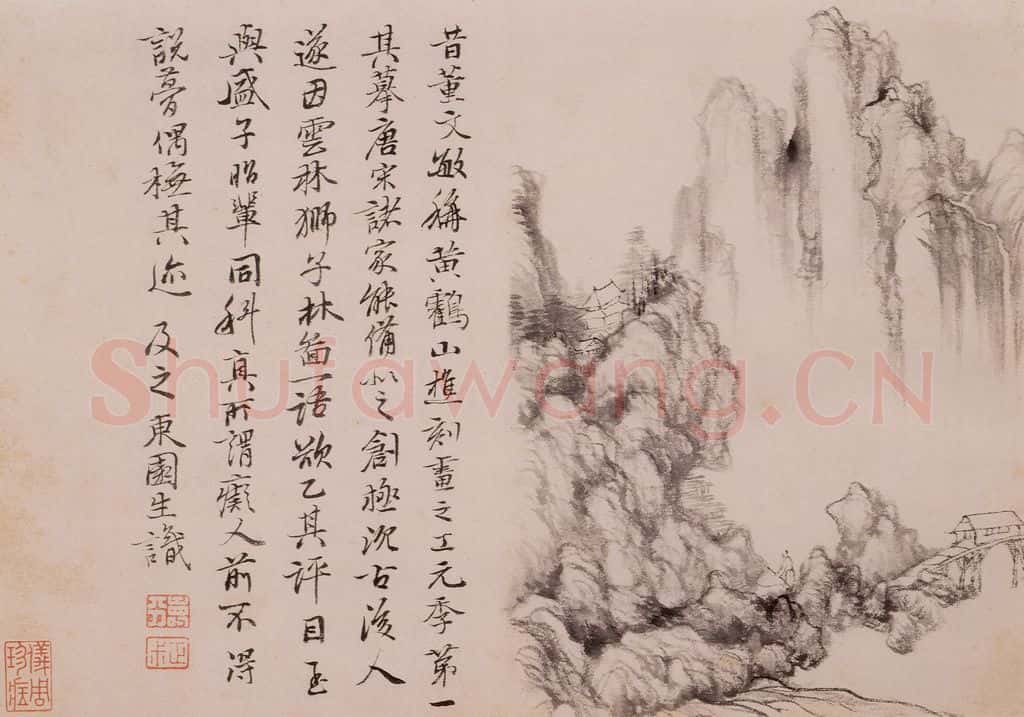 昔董文敏稱黃鶴山樵刻畫之工元季第一
其摹唐宋諸家能備
之創極次古後人
遂因雲林獅子林圖一語欲乙其評目至
與盛子昭輩同科真所謂癡人前不得
說夢偶橅其迹 及之東園生識
儀周珍藏
Shufawang.CN